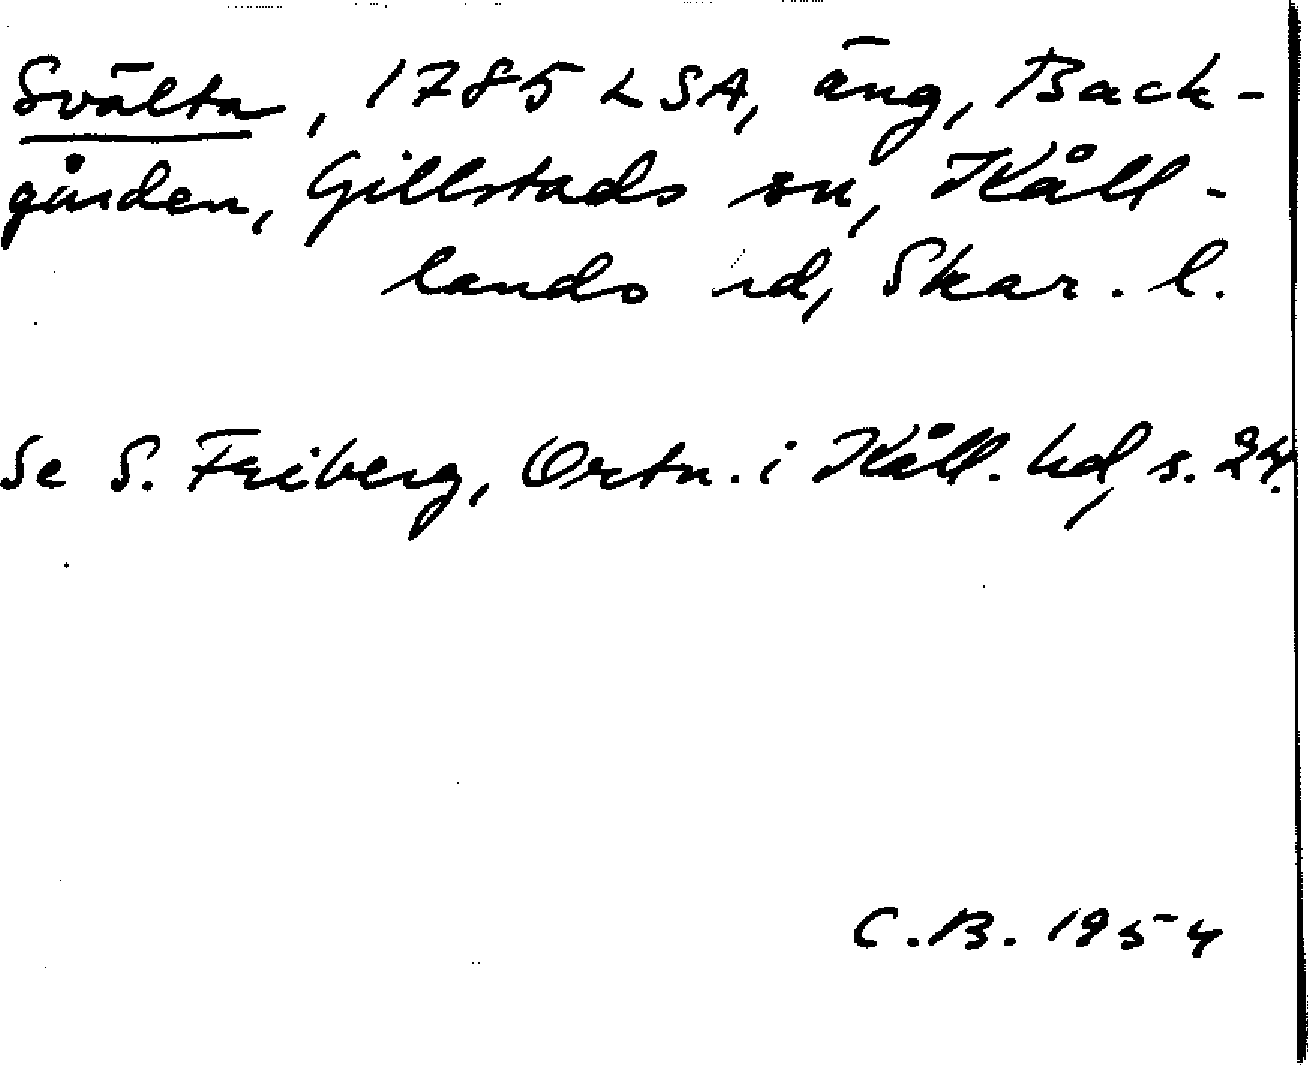 Svälta, 1785 LSA, äng, Back-
gården, Gillstads sn, Kåll-
lands hd, Skar. l.
Se S. Friberg, Ortn. i Kåll. hd, s. 24.
C.B. 1954